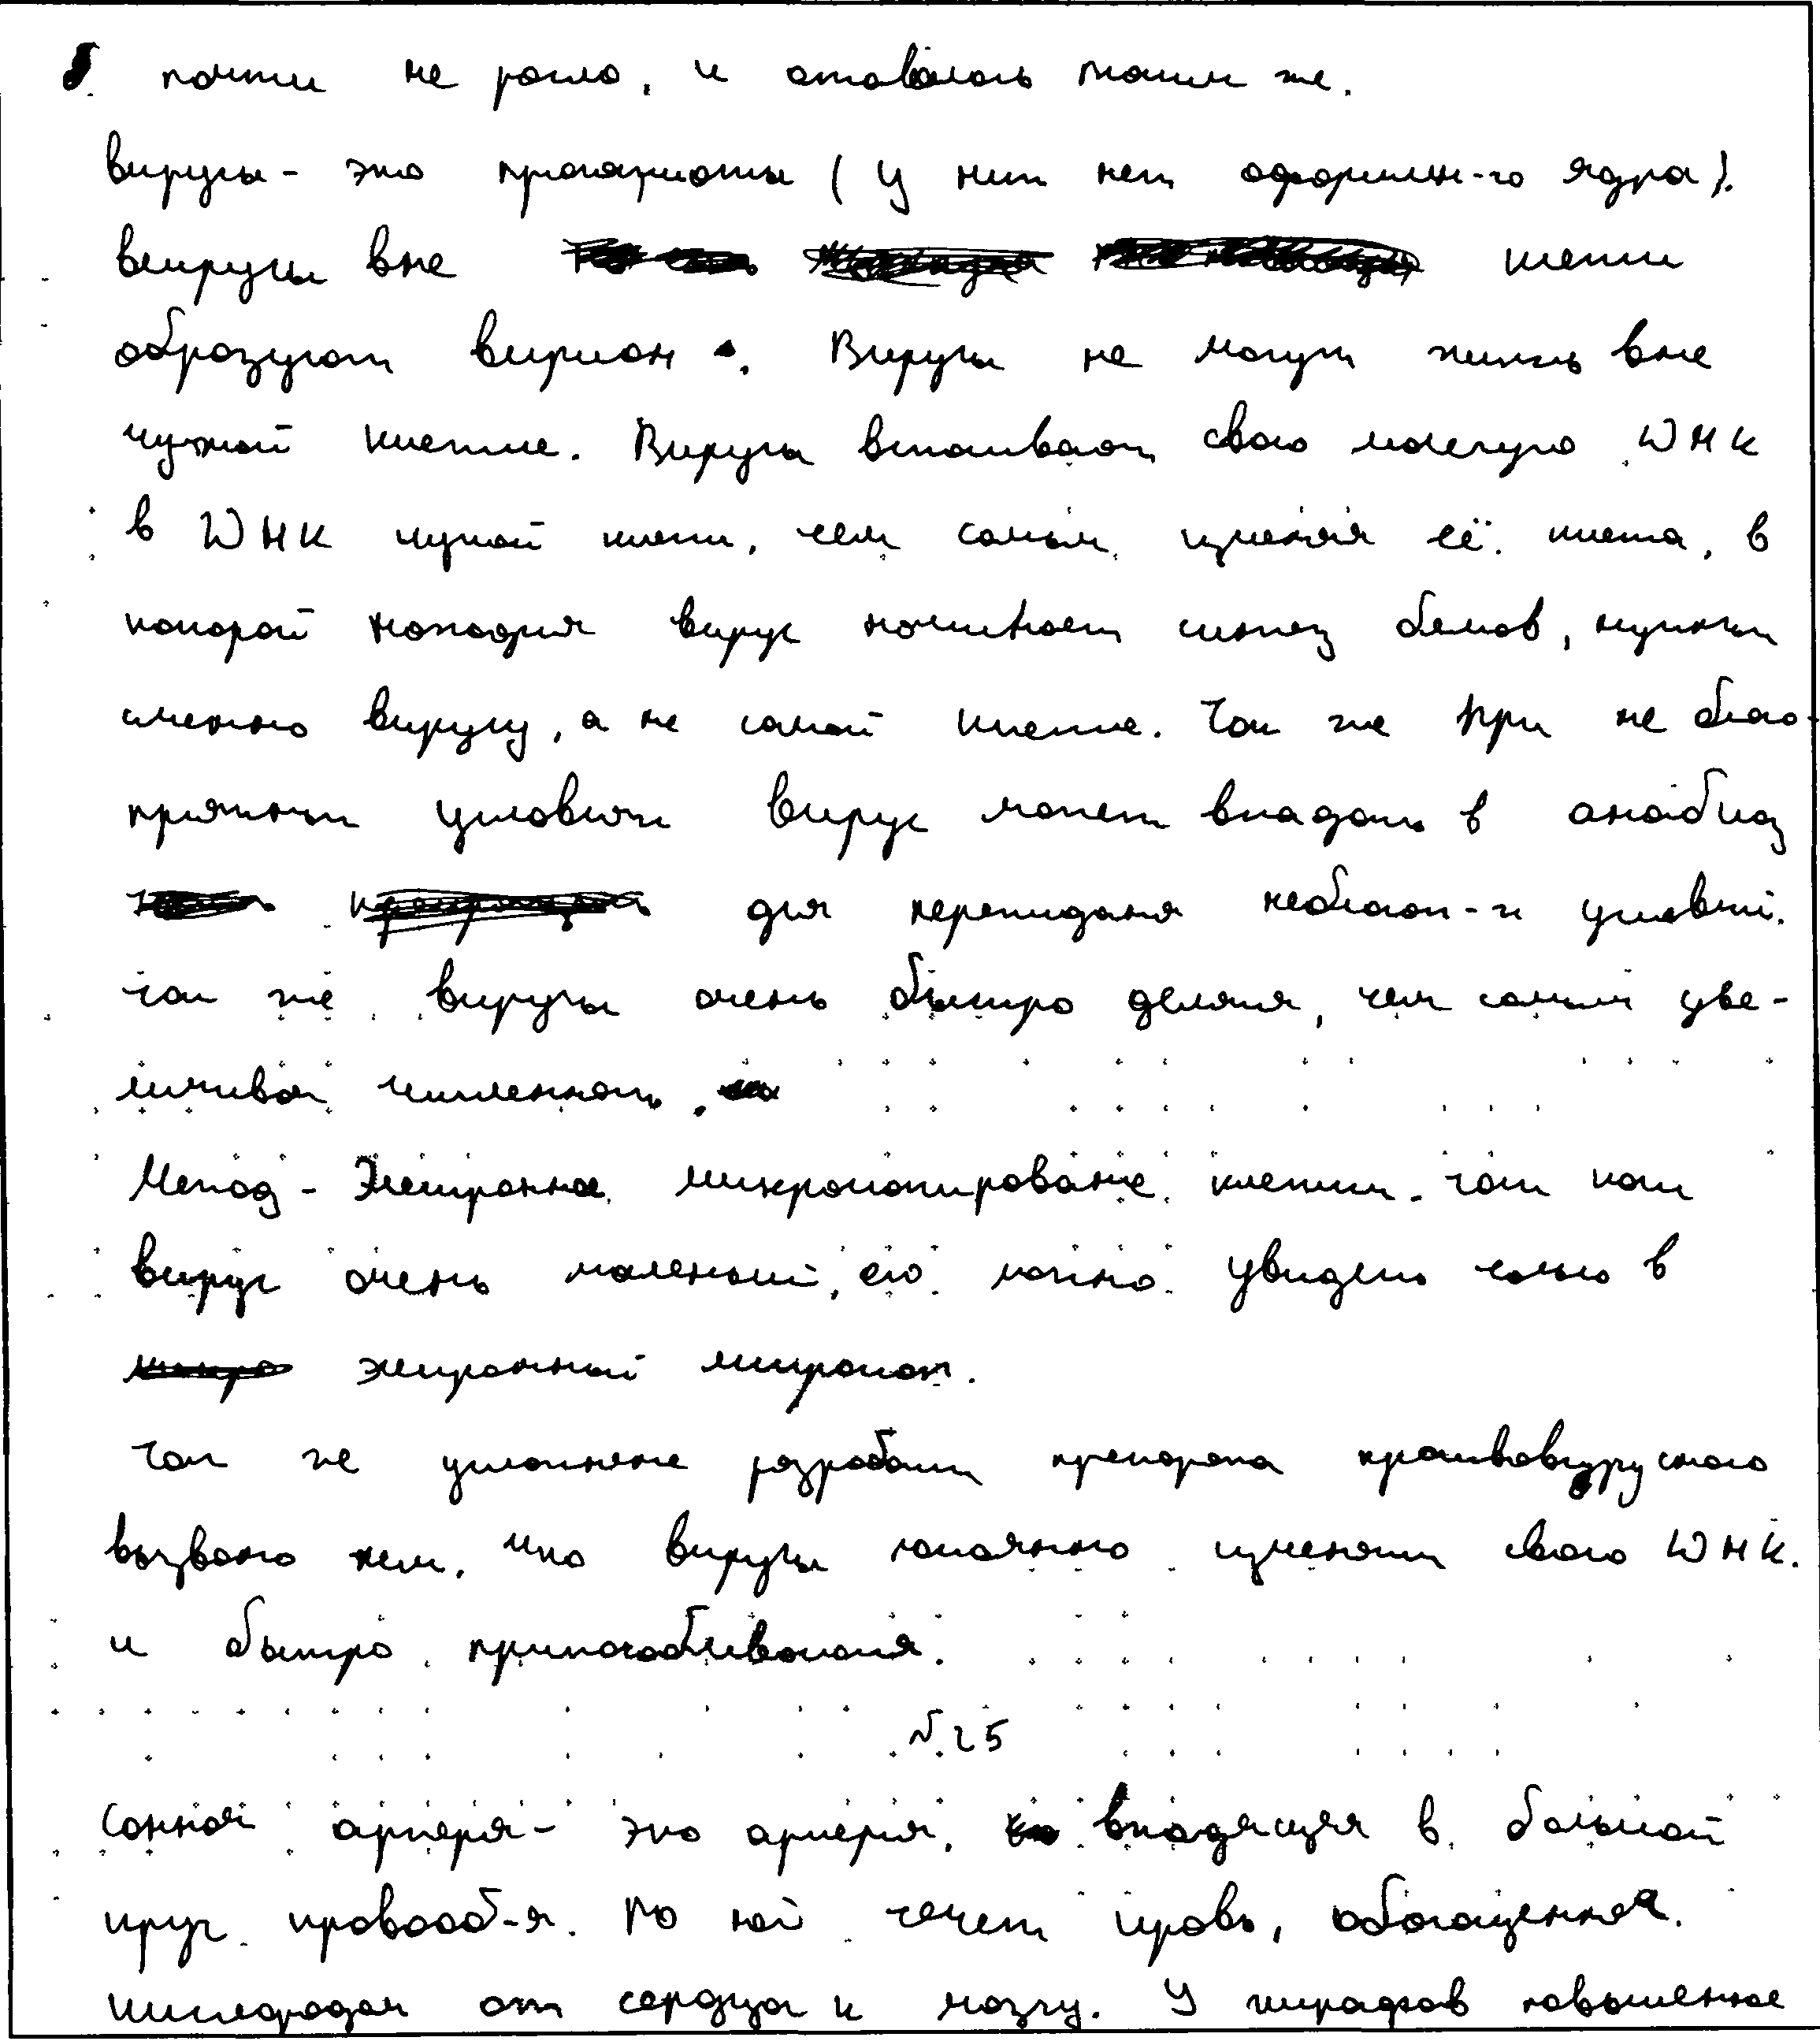 почти не росло, и оставалось таким же.
вирусы - это прокариоты ( у них нет оформлен-го ядра ).
вирусы вне клетки
образуют вирион. Вирусы не могут жить вне
чужой клетке. Вирусы встаивают свою молекулу ДНК
в ДНК чужой клетки, тем самым изменяя её. клетка, в
которой находится вирус начинает синтез белков, нужных
именно вирусу, а не самой клетке. Так же при не благо-
приятных условиях вирус может впадать в анабиоз
для перепидания неблагоп-х условий.
так же вирусы очень быстро делятся, чем самым уве-
личивая численность.
Метод - Электронное микроскопирование клетки. так как
вирус очень маленький, его можно увидеть только в
электронный микроскоп.
так же усложнение разработки препарата противовирусного
вызвано тем, что вирусы постоянно изменяют свою ДНК.
и быстро приспосабливаются.
№25
Сонная артерия - это артерия, впадящая в большой
круг кровооб-я. По ней течет кровь, обогащенная
кислородом от сердца к мозгу. У жирафов повышенное